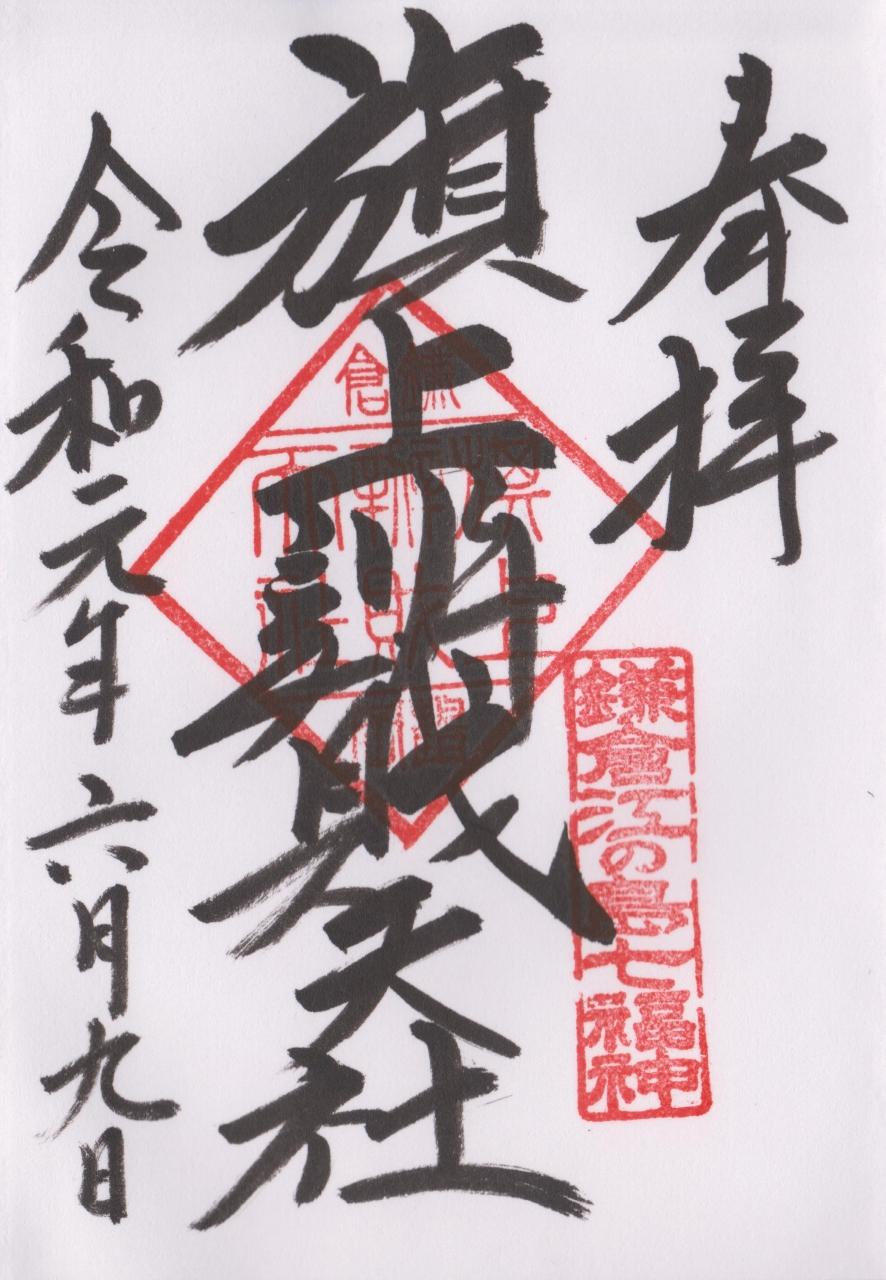 奉拝
鎌倉江の島七福神
旗上辨財天社
鎌倉
令和元年六月九日